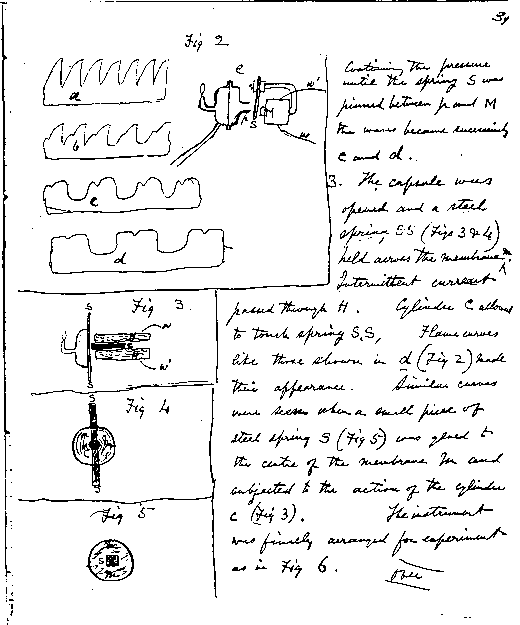 39
Fig 2
a
b
c
d
e
w'
M
S
w
Continuing the pressure
until the spring S was
pinned between p and M
the waves became successively
c and d.
3. The capsule was
opened and a steel
spring, SS (Figs 3 & 4)
held across the membrane m.
Intermittent current
passed through H. Cylinder C allowed
to touch spring S.S, Flame curves
like those shown in d (Fig 2) made
their appearance. Similar curves
were seen when a small piece of
steel spring S (Fig 5) was glued to
the centre of the membrane m and
subjected to the action of the cylinder
c (Fig 3). The instrument
was finally arranged for experiment
as in Fig 6.
Over
Fig 3.
S
w'
S
Fig 4
S
S
Fig 5
S
m